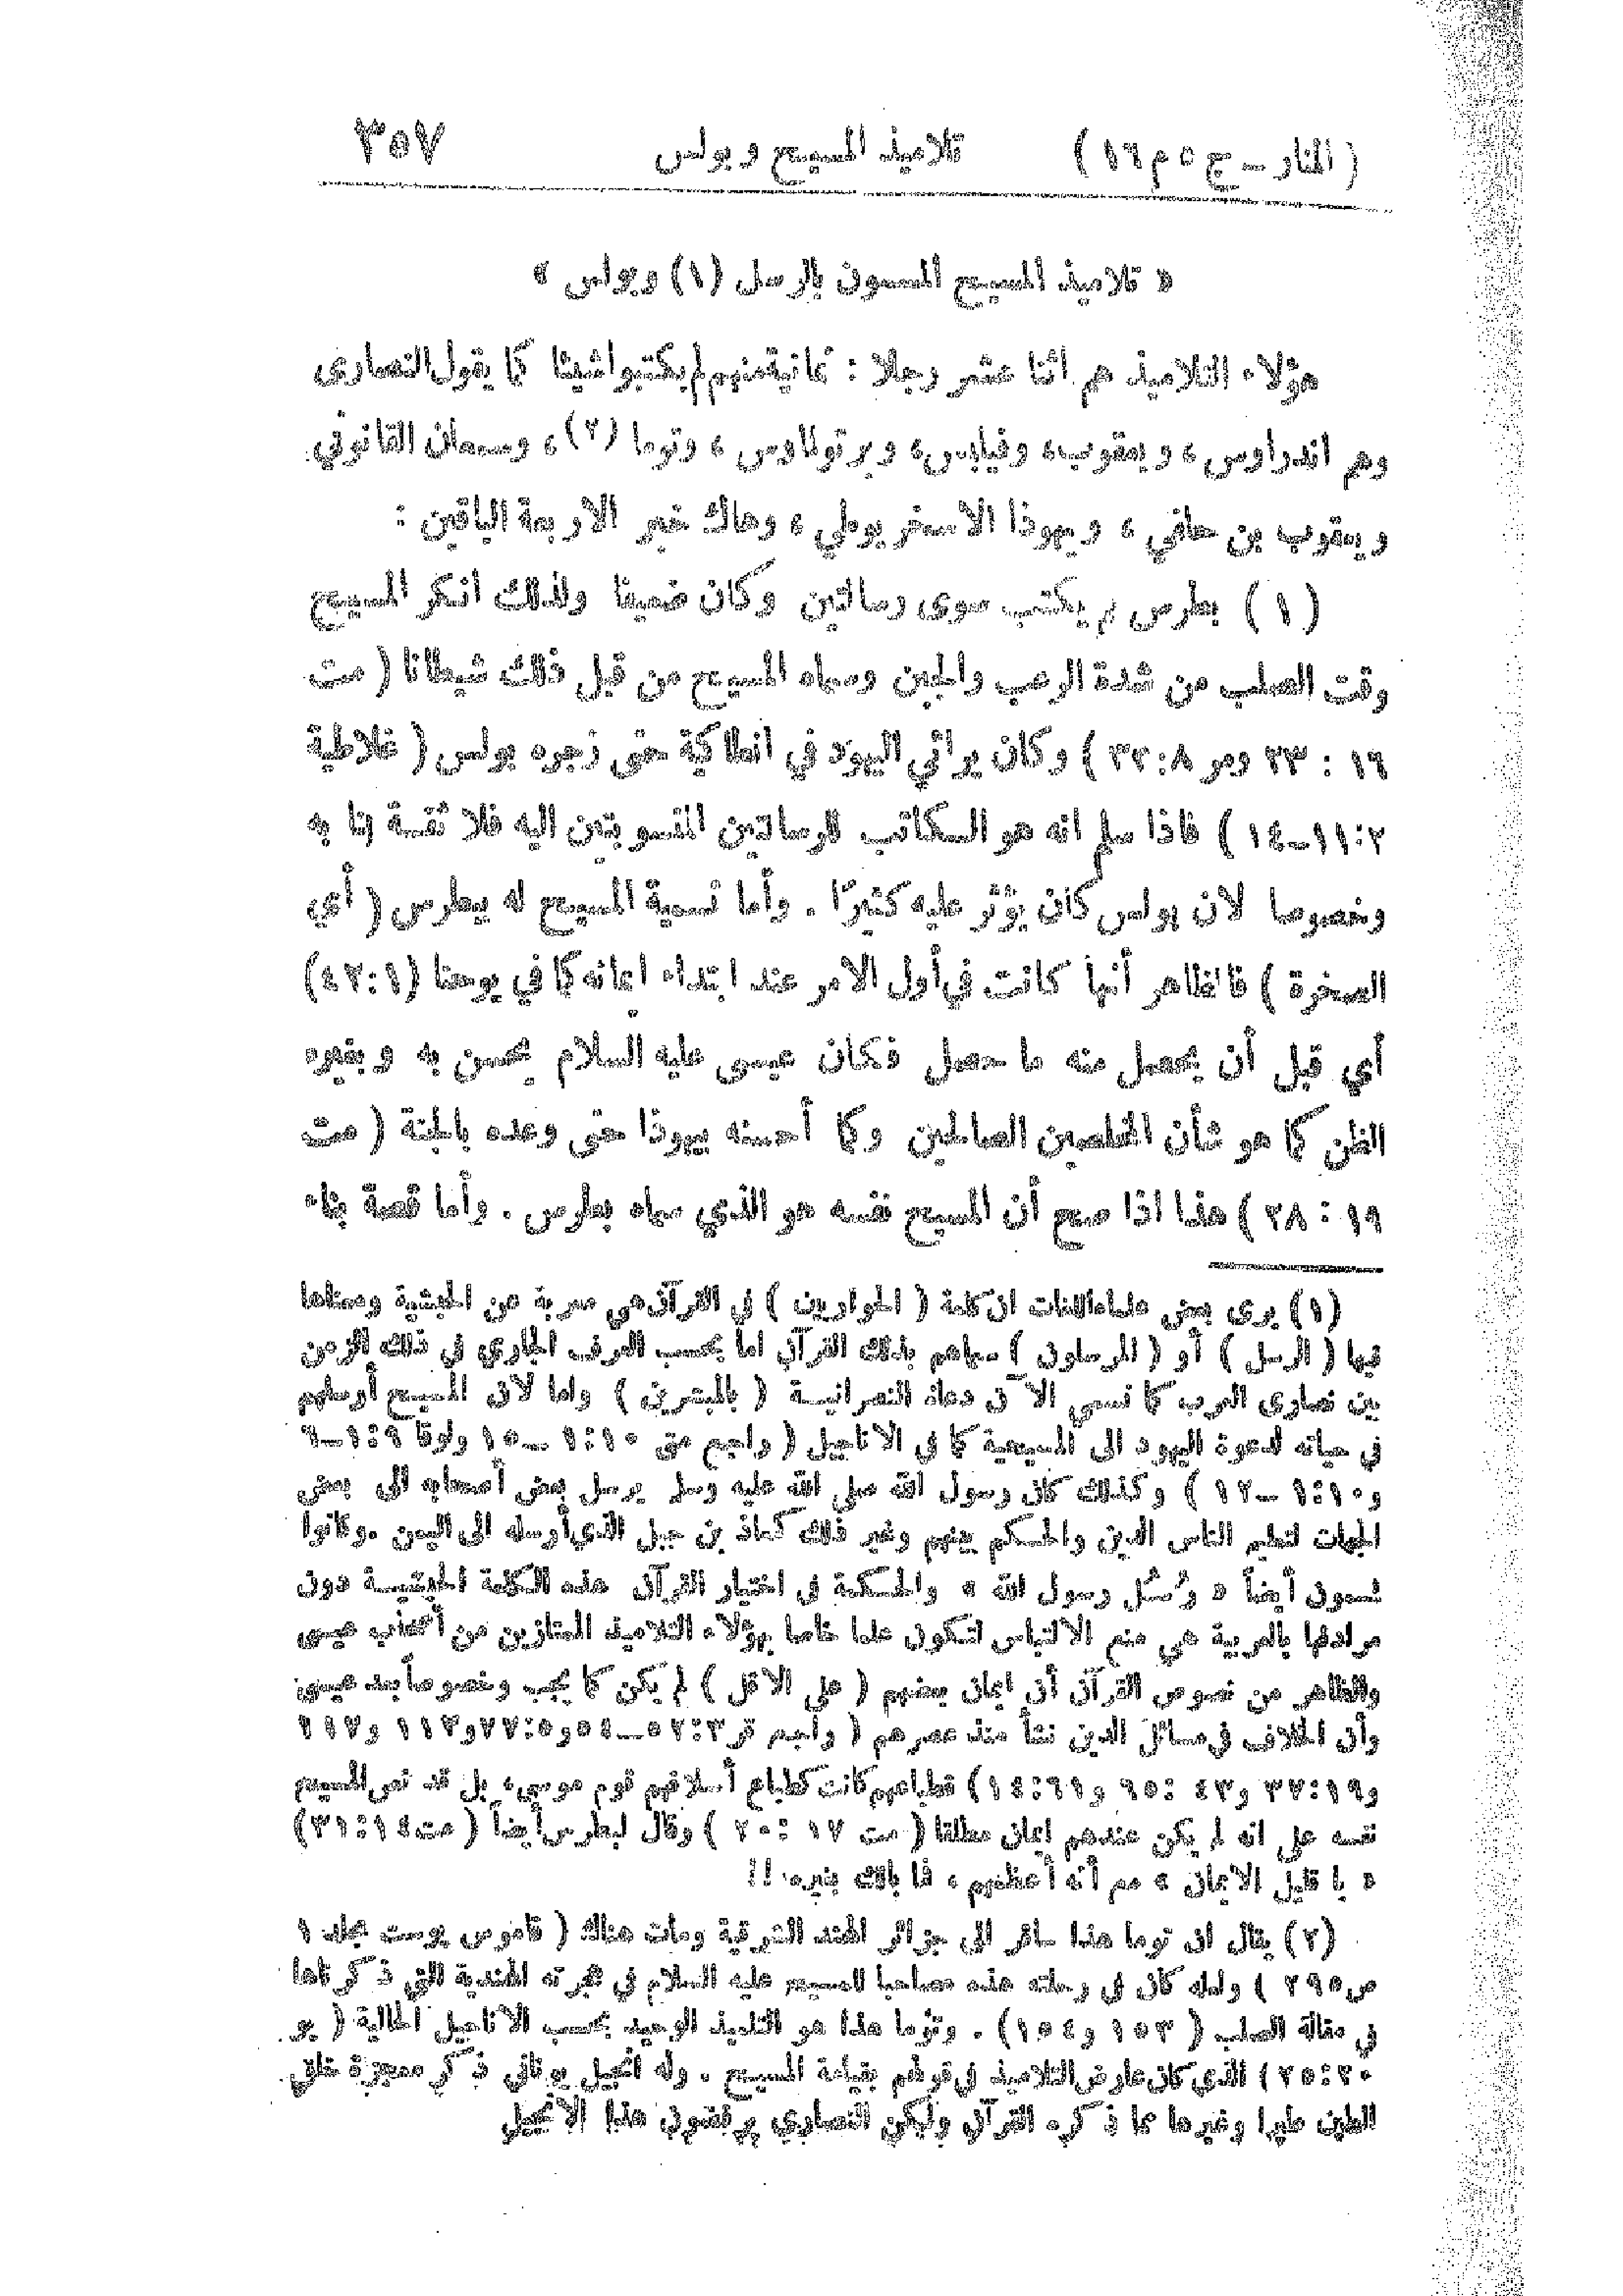 (المنار – ج ٥ م ١٦) تلاميذ المسيح وبولس ٣٥٧
« تلاميذ المسيح المسمون بالرسل (١) وبولس »
هؤلاء التلاميذ هم اثنا عشر رجلا : ثمانية منهم لم يكتبوا شيئا كما يقول النصارى
وهم اندراوس ، ويعقوب، وفيلبس، وبرتولماوس ، وتوما (٢)، وسمعان القانوني
ويعقوب بن حلفي ، ويهوذا الاسخريوطي ، وهاك خبر الاربعة الباقين :
(١) بطرس لم يكتب سوى رسالتين وكان ضعيفا ولذلك انكر المسيح
وقت الصلب من شدة الرعب والجبن وسماه المسيح من قبل ذلك شيطانا ( مت
١٦ : ٢٣ ومر ٨:٣٣ ) وكان يرائي اليهود في انطاكية حتى زجره بولس ( غلاطية
٢:١١–١٤ ) فاذا سلم انه هو الكاتب للرسالتين المنسوبتين اليه فلا ثقة لنا به
وخصوصا لان بولس كان يؤثر عليه كثيرًا . وأما تسمية المسيح له ببطرس ( أي
الصخرة ) فالظاهر أنها كانت في أول الامر عند ابتداء ايمانه كما في يوحنا (١:٤٢)
أي قبل أن يحصل منه ما حصل فكان عيسى عليه السلام يحسن به وبغيره
الظن كما هو شأن المخلصين الصالحين وكما أحسنه بيهوذا حتى وعده بالجنة ( مت
١٩ : ٢٨ ) هذا اذا صح أن المسيح نفسه هو الذي سماه بطرس . وأما قصة بناء
(١) يرى بعض علماء اللغات ان كلمة ( الحواريين ) في القرآن هي معربة عن الحبشية ومعناها
فيها ( الرسل ) أو ( المرسلون ) سماهم بذلك القرآن اما بحسب العرف الجاري في ذلك الزمن
بين نصارى العرب كما نسمي الآن دعاة النصرانية ( بالمبشرين ) واما لان المسيح أرسلهم
في حياته لدعوة اليهود الى المسيحية كما في الاناجيل ( راجع متى ١٠:١ –١٥ ولوقا ٩:١–٦
و١٠:١ –١٢ ) وكذلك كان رسول الله صلى الله عليه وسلم يرسل بعض أصحابه الى بعض
الجهات لتعليم الناس الدين والحكم بينهم وغير ذلك كمعاذ بن جبل الذي أرسله الى اليمن . وكانوا
يسمون أيضاً « رُسُل رسول الله » والحكمة في اختيار القرآن هذه الكلمة الحبشية دون
مرادفها بالعربية هي منع الالتباس لتكون علما خاصا بهؤلاء التلاميذ الممتازين من أصحاب عيسى
والظاهر من نصوص القرآن أن ايمان بعضهم ( على الاقل ) لم يكن كما يجب وخصوصاً بعد عيسى
وأن الخلاف في مسائل الدين نشأ منذ عصرهم ( راجع قر ٣:٥٢–٥٤ و٥:٧٧ و١١٢ و١١٧
و١٩:٣٧ و٤٣ :٦٥ و٦١:١٤) فطباعهم كانت كطباع أسلافهم قوم موسى، بل قد نص المسيح
نفسه على انه لم يكن عندهم ايمان مطلقا ( مت ١٧ : ٢٠ ) وقال لبطرس أيضاً ( مت ١٤:٣١)
« يا قليل الايمان » مع أنه أعظمهم ، فما بالك بغيره !!
(٢) يقال ان توما هذا سافر الى جزائر الهند الشرقية ومات هناك ( قاموس بوست مجلد ١
ص ٢٩٥ ) ولعله كان في رحلته هذه مصاحبا للمسيح عليه السلام في هجرته الهندية التي ذكرناها
في مقالة الصلب ( ١٥٣ و١٥٤) . وتوما هذا هو التلميذ الوحيد بحسب الاناجيل الحالية ( يو
٢٠:٢٥ ) الذي كان عارض التلاميذ في قولهم بقيامة المسيح . وله انجيل يوناني ذكر معجزة خلق
الطين طيرا وغيرها مما ذكره القرآن ولكن النصارى يرفضون هذا الانجيل